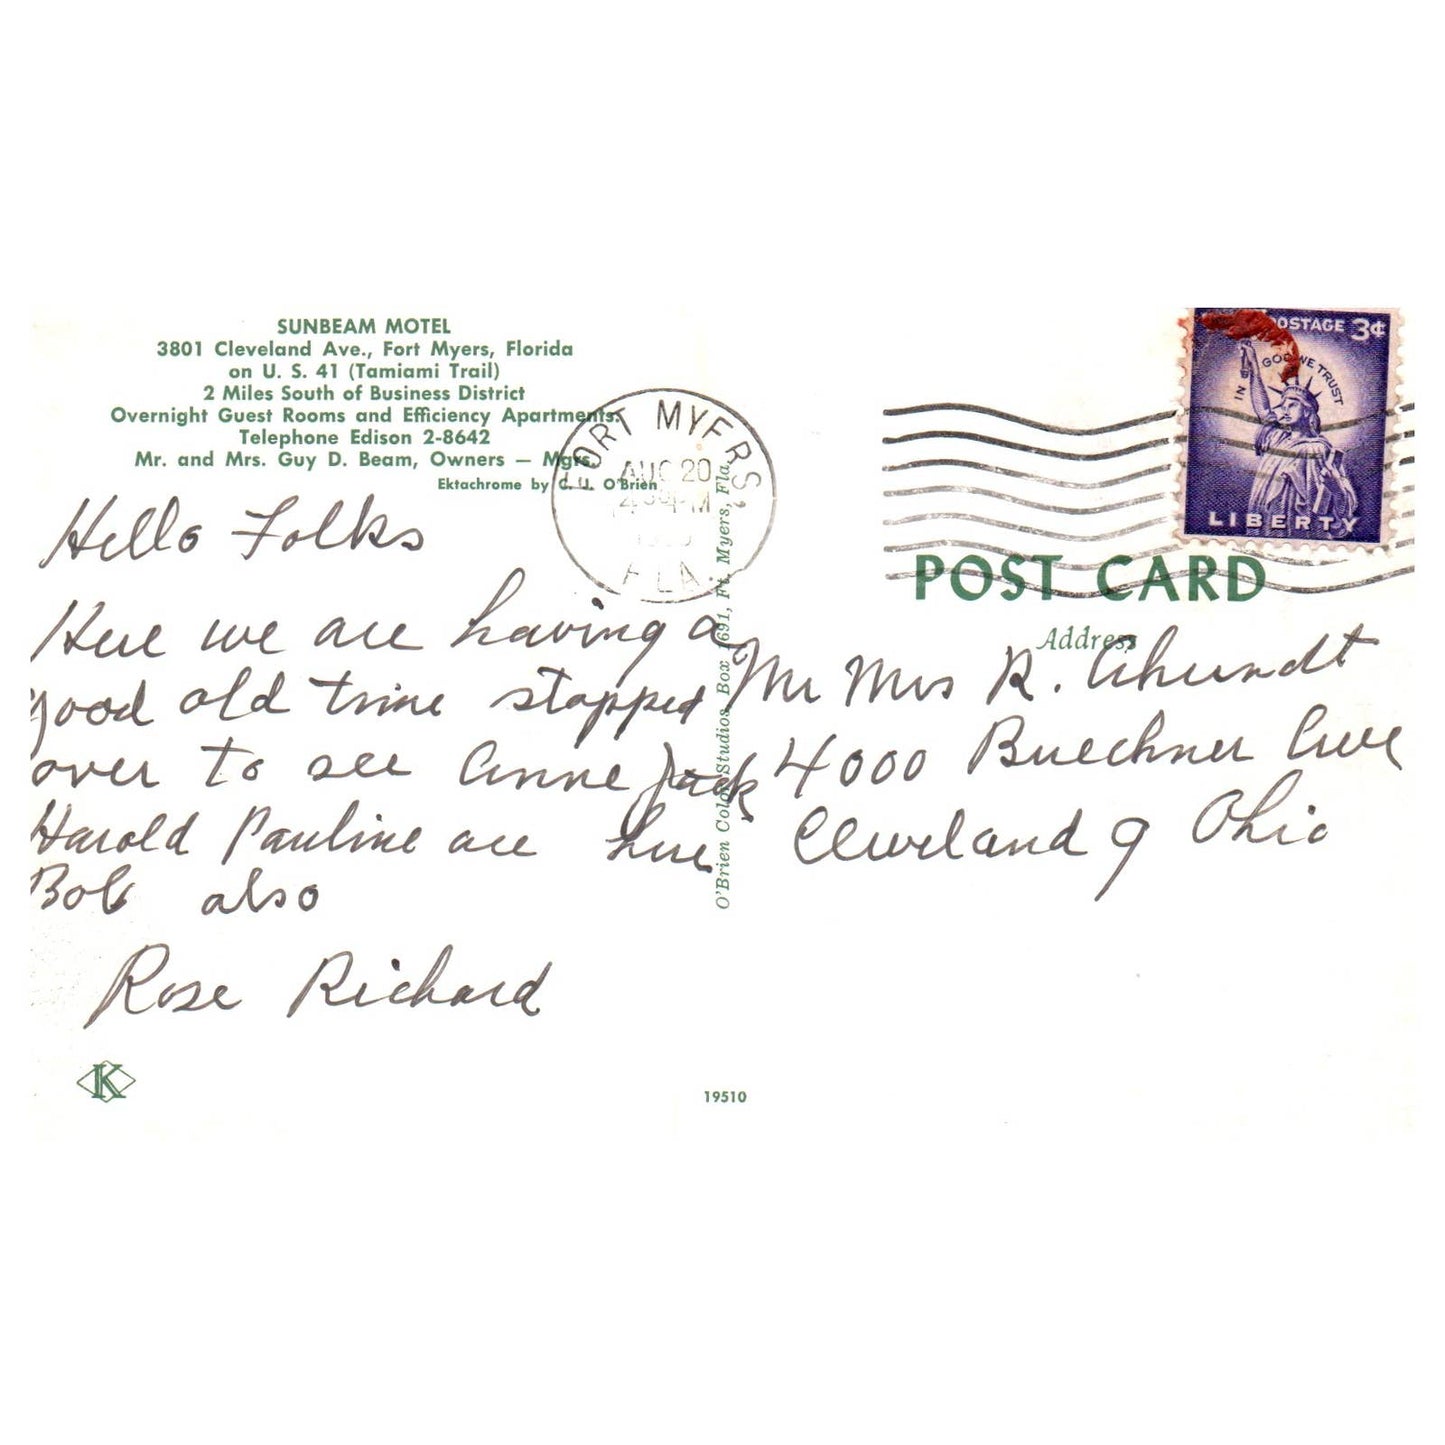 SUNBEAM MOTEL
3801 Cleveland Ave., Fort Myers, Florida
on U. S. 41 (Tamiami Trail)
2 Miles South of Business District
Overnight Guest Rooms and Efficiency Apartments.
Telephone Edison 2-8642
Mr. and Mrs. Guy D. Beam, Owners — Mgrs.
Ektachrome by C. J. O'Brien
Hello Folks
Here we are having a
good old time stopped
over to see Anne Jack
Harold Pauline are here
Bob also
Rose Richard
K
19510
O'Brien Color Studios, Box 1691, Ft. Myers, Fla.
FORT MYERS,
AUG 20
PM
FLA.
POSTAGE 3¢
IN GOD WE TRUST
LIBERTY
POST CARD
Address
Mr Mrs R.
4000 Buechner Ave
Cleveland 9 Ohio